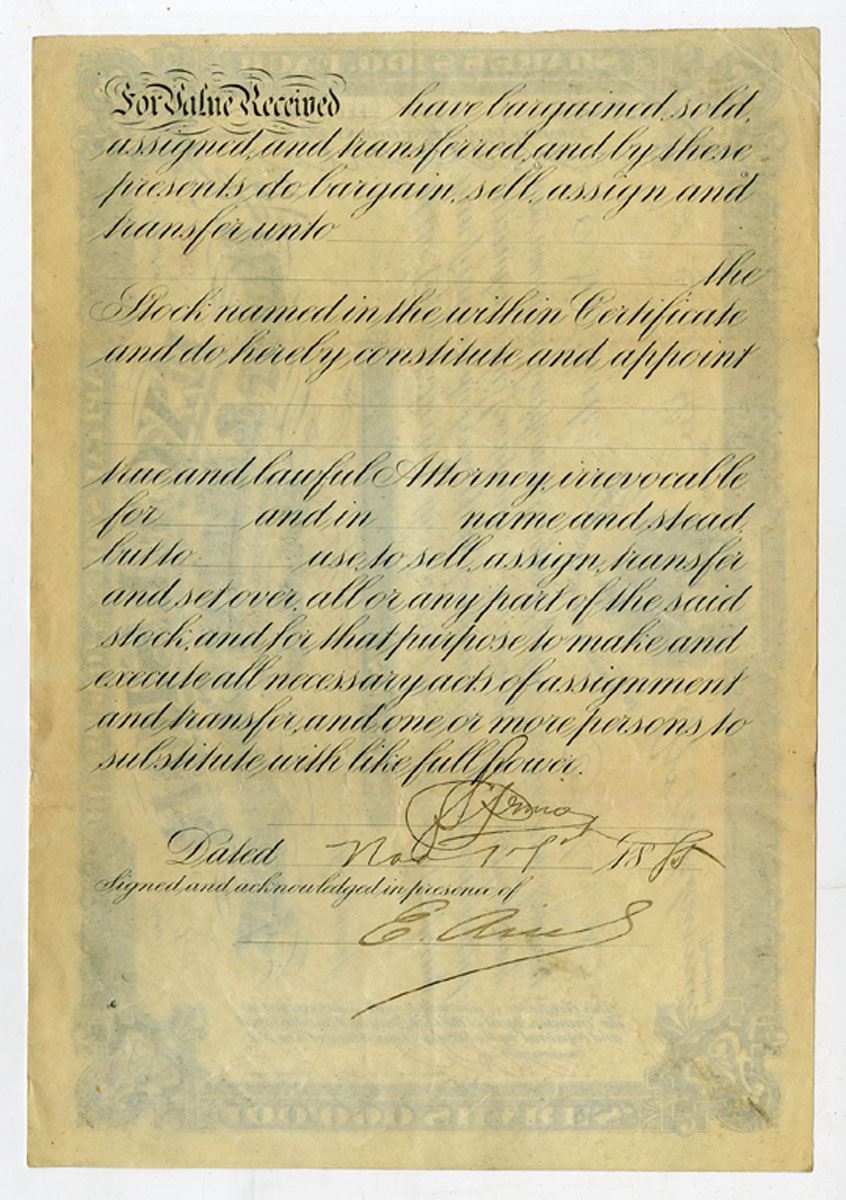 For Value Received have bargained, sold,
assigned, and transferred, and by these
presents do bargain, sell, assign and
transfer, unto
the
Stock named in the within Certificate
and do hereby constitute and appoint
true and lawful Attorney, irrevocable
for and in name and stead,
but to use, to sell, assign, transfer
and set over, all or any part of the said
stock, and for that purpose to make and
execute all necessary acts of assignment
and transfer, and one or more persons to
substitute with like full power.
Dated Nov 17 18
Signed and acknowledged in presence of
E.